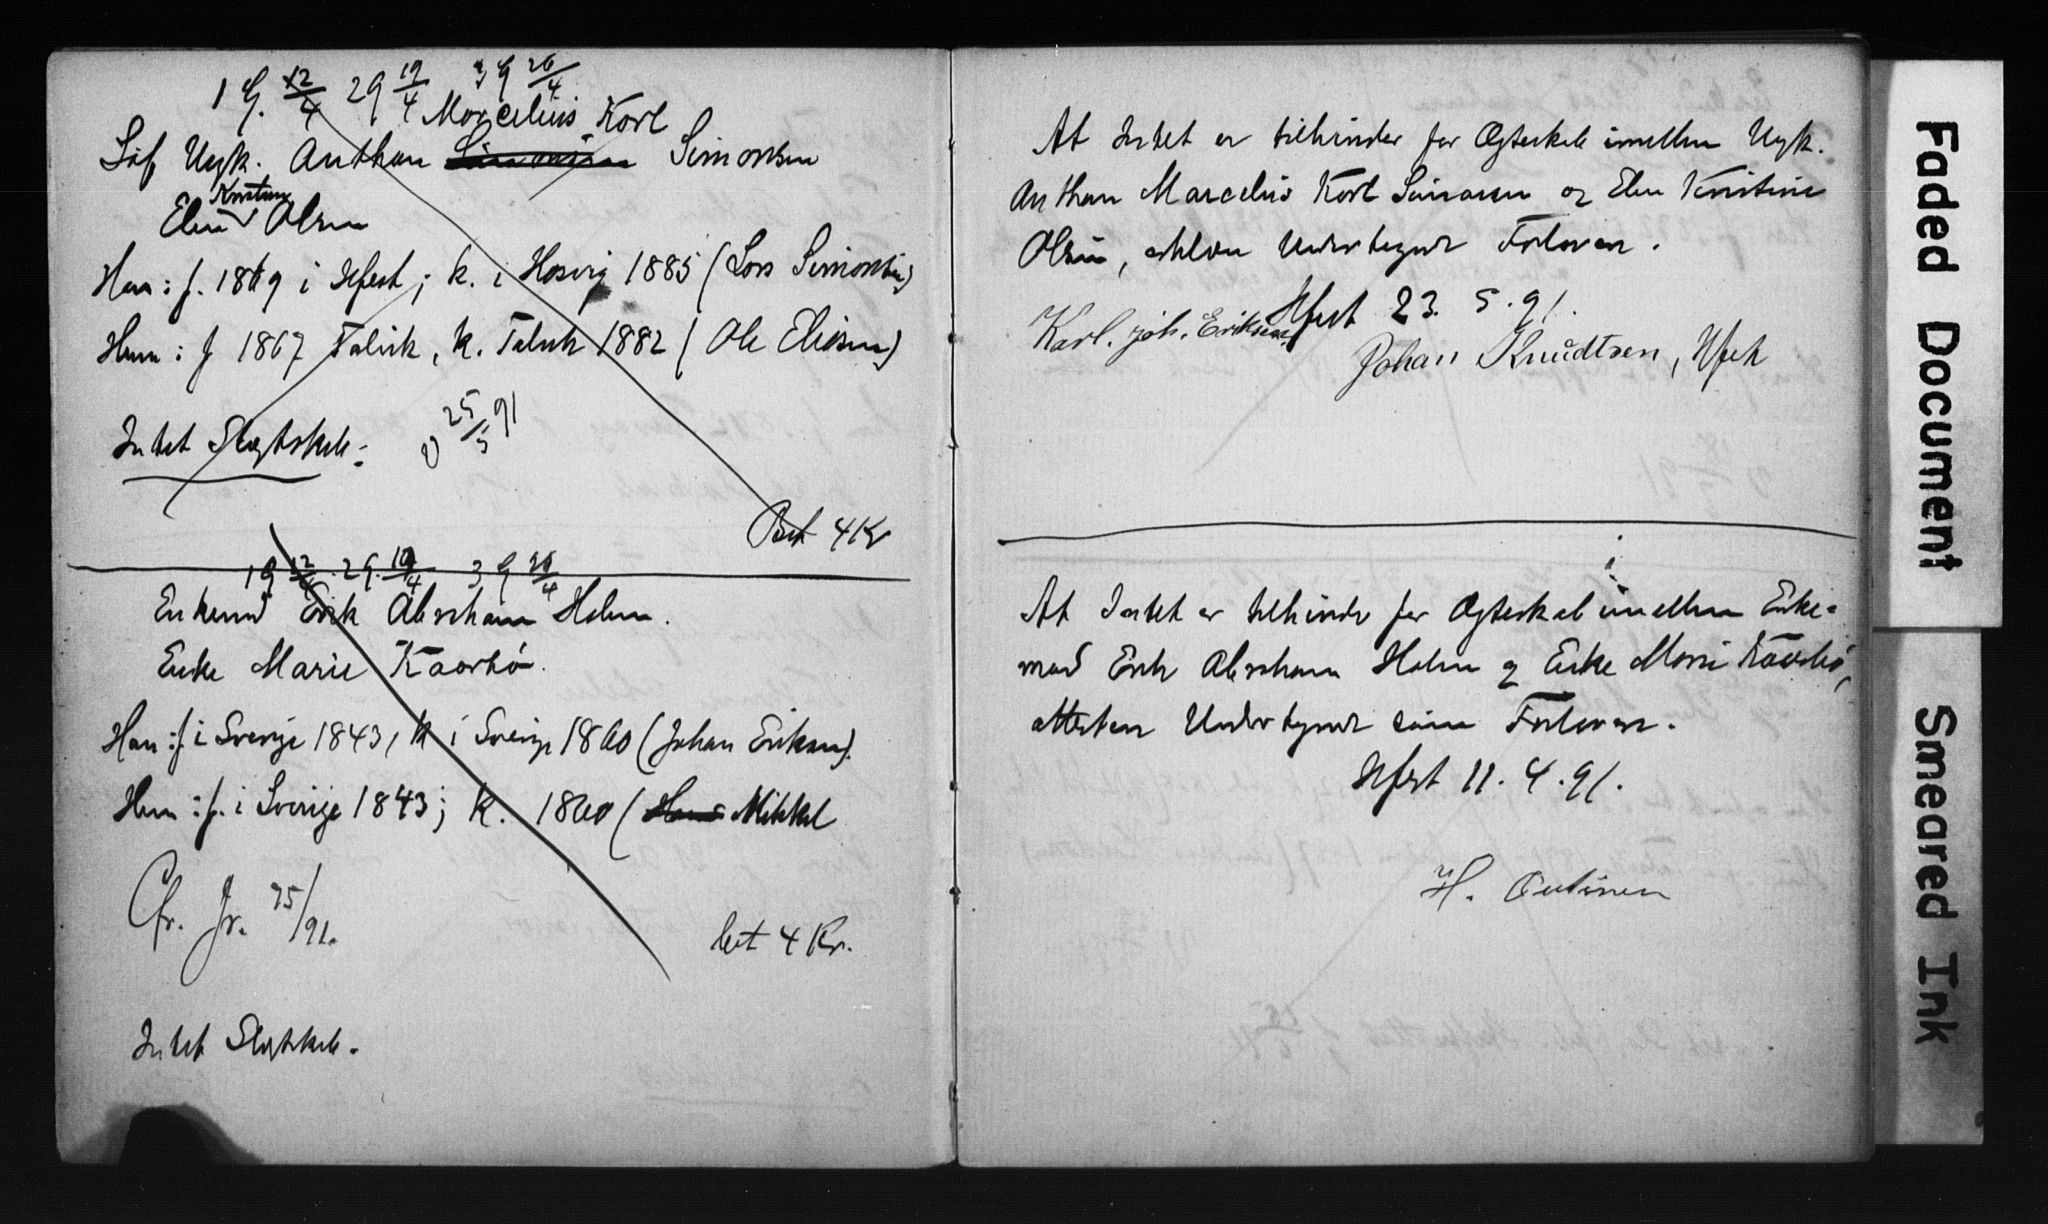 1 G. 12/4 2 G 19/4 3 G 26/4
Marcelius Karl
Ungk. Anthon Simonsen
Kristine
Elen Olsen
Han: f. 1869 i Hfest; k. i Hasvig 1885 (Lars Simonsen)
Hun: f 1867 Talvik, k. Talvik 1882 (Ole Eliasen)
Intet Slægtskab.
v 25/5 91
Bet 4 Kr
1 G 12/4. 2 G. 19/4 3 G 26/4
Enkemd Erik Abraham Holm.
Enke Marie Kaarbø.
Han: f i Sverige 1843, k i Sverige 1860 (Johan Eriksen).
Hun: f. i Sverige 1843; k. 1860 (Hans Mikkel
Cfr. Jr. 25/91.
bet 4 Kr.
Intet Slegtskab.
At Intet er tilhinder for Ægteskab imellem Ungk.
Anthon Marcelius Karl Simonsen og Elen Kristine
Olsen, erklærer Undertegnede Forlovere.
Hfest 23. 5. 91.
Karl. Joh. Eriksen
Johan Knudtsen, Hfest
At Intet er tilhinder for Ægteskab imellem Enke-
mad Erik Abraham Holm og Enke Marie Kaarbø,
attesterer Undertegnede som Forlovere.
Hfest 11. 4. 91.
H.
Faded Document
Smeared Ink